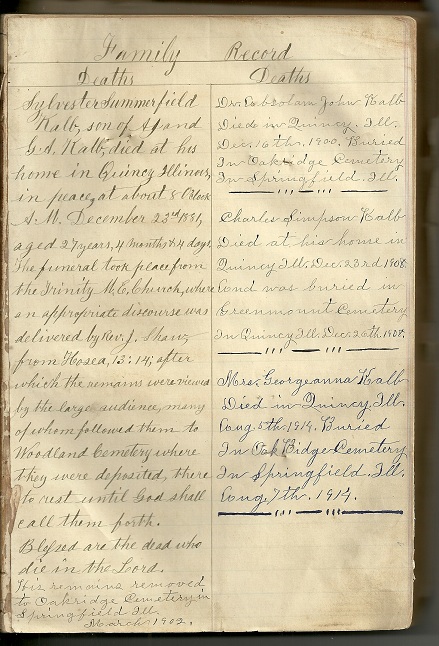 Family Record
Deaths
Sylvester Summerfield
Kalb, son of A J and
G. A. Kalb, died at his
home in Quincy Illinois,
in peace, at about 8 O'clock
A. M. December 23rd 1881,
aged 27 years, 4 months & 4 days
The funeral took place from
the Trinity M. E. Church, where
an appropriate discourse was
delivered by Rev. J. Shaw,
from Hosea, 13:14; after
which the remains were viewed
by the large audience, many
of whom followed them to
Woodland Cemetery where
they were deposited, there
to rest until God shall
call them forth.
Blessed are the dead who
die in the Lord.
His remains removed
to Oakridge Cemetery in
Springfield Ill.
March 1902.
Deaths
Dr. Absolom John Kalb
Died in Quincy. Ill.
Dec. 16th. 1900. Buried
In Oakridge Cemetery
In Springfield. Ill.
Charles Simpson Kalb
Died at his home in
Quincy Ill. Dec. 23rd 1908
And was buried in
Greenmount Cemetery
In Quincy Ill. Dec. 26th. 1908.
Mrs. Georgeanna Kalb
Died in Quincy, Ill.
Aug 5th. 1914. Buried
In Oak Ridge Cemetery
In Springfield. Ill.
Aug. 7th. 1914.